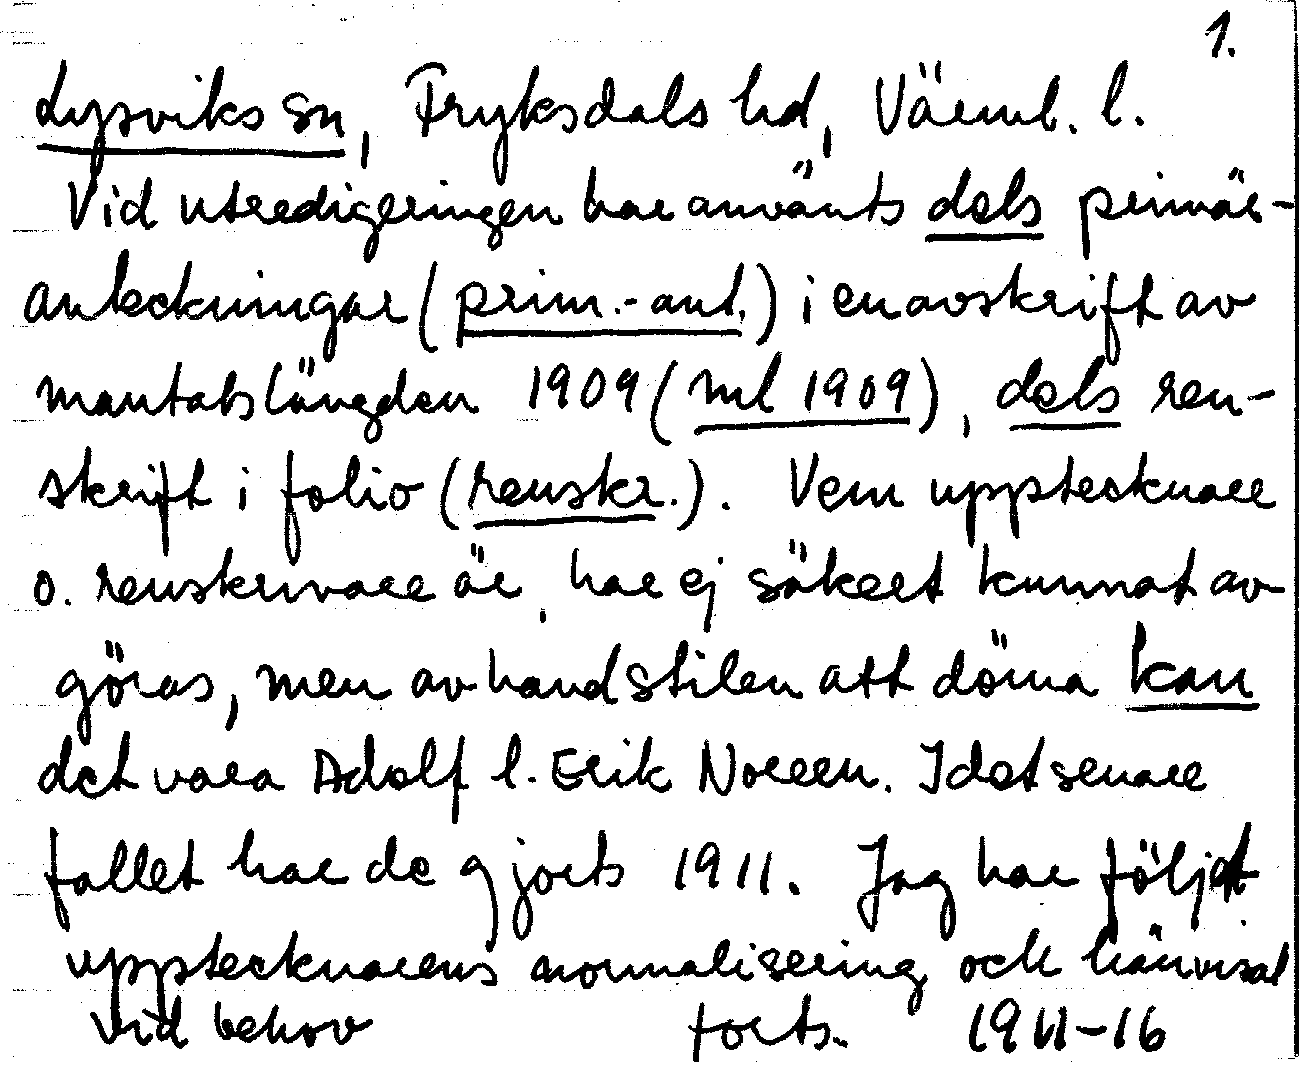 1.
Lysviks sn, Fryksdals hd, Värml. l.
Vid utredigeringen har använts dels primär-
anteckningar (prim.-ant.) i en avskrift av
mantalslängden 1909 (ml 1909), dels ren-
skrift i folio (renskr.). Vem upptecknare
o. renskrivare är, har ej säkert kunnat av
göras, men av handstilen att döma kan
det vara Adolf l. Erik Noreen. I det senare
fallet har de gjorts 1911. Jag har följt
upptecknarens normalisering och hänvisat
vid behov forts. 1911-16